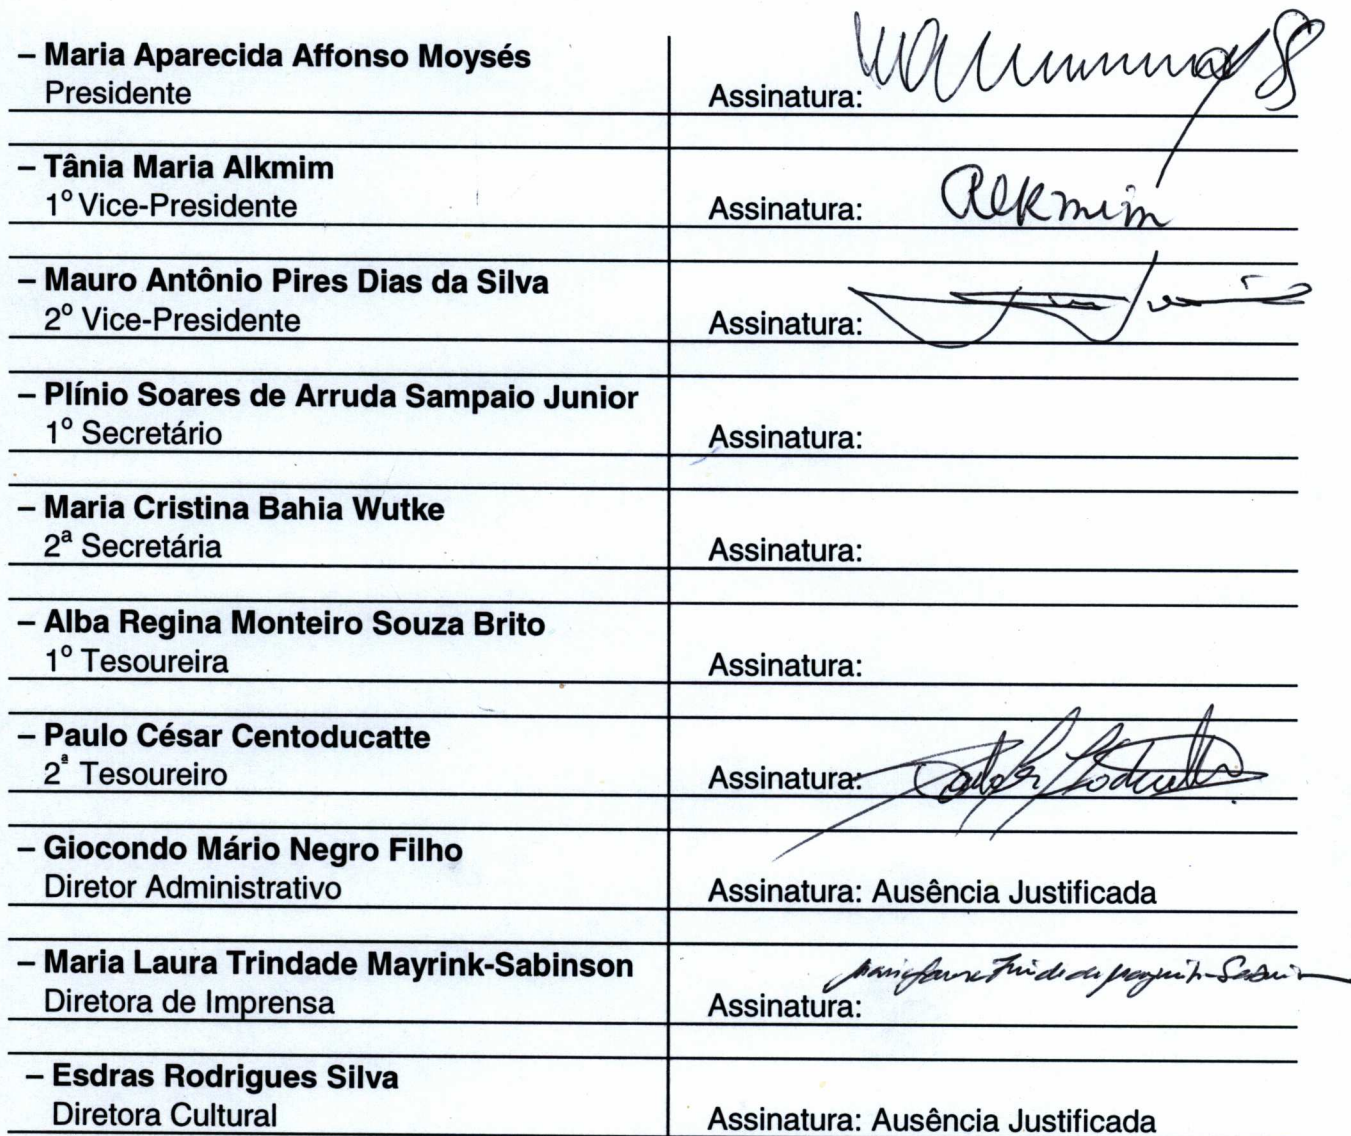 – Maria Aparecida Affonso Moysés
Presidente
Assinatura:
– Tânia Maria Alkmim
1º Vice-Presidente
Assinatura: Alkmim
– Mauro Antônio Pires Dias da Silva
2º Vice-Presidente
Assinatura:
– Plínio Soares de Arruda Sampaio Junior
1º Secretário
Assinatura:
– Maria Cristina Bahia Wutke
2ª Secretária
Assinatura:
– Alba Regina Monteiro Souza Brito
1º Tesoureira
Assinatura:
– Paulo César Centoducatte
2ª Tesoureiro
Assinatura:
– Giocondo Mário Negro Filho
Diretor Administrativo
Assinatura: Ausência Justificada
– Maria Laura Trindade Mayrink-Sabinson
Diretora de Imprensa
Assinatura:
– Esdras Rodrigues Silva
Diretora Cultural
Assinatura: Ausência Justificada